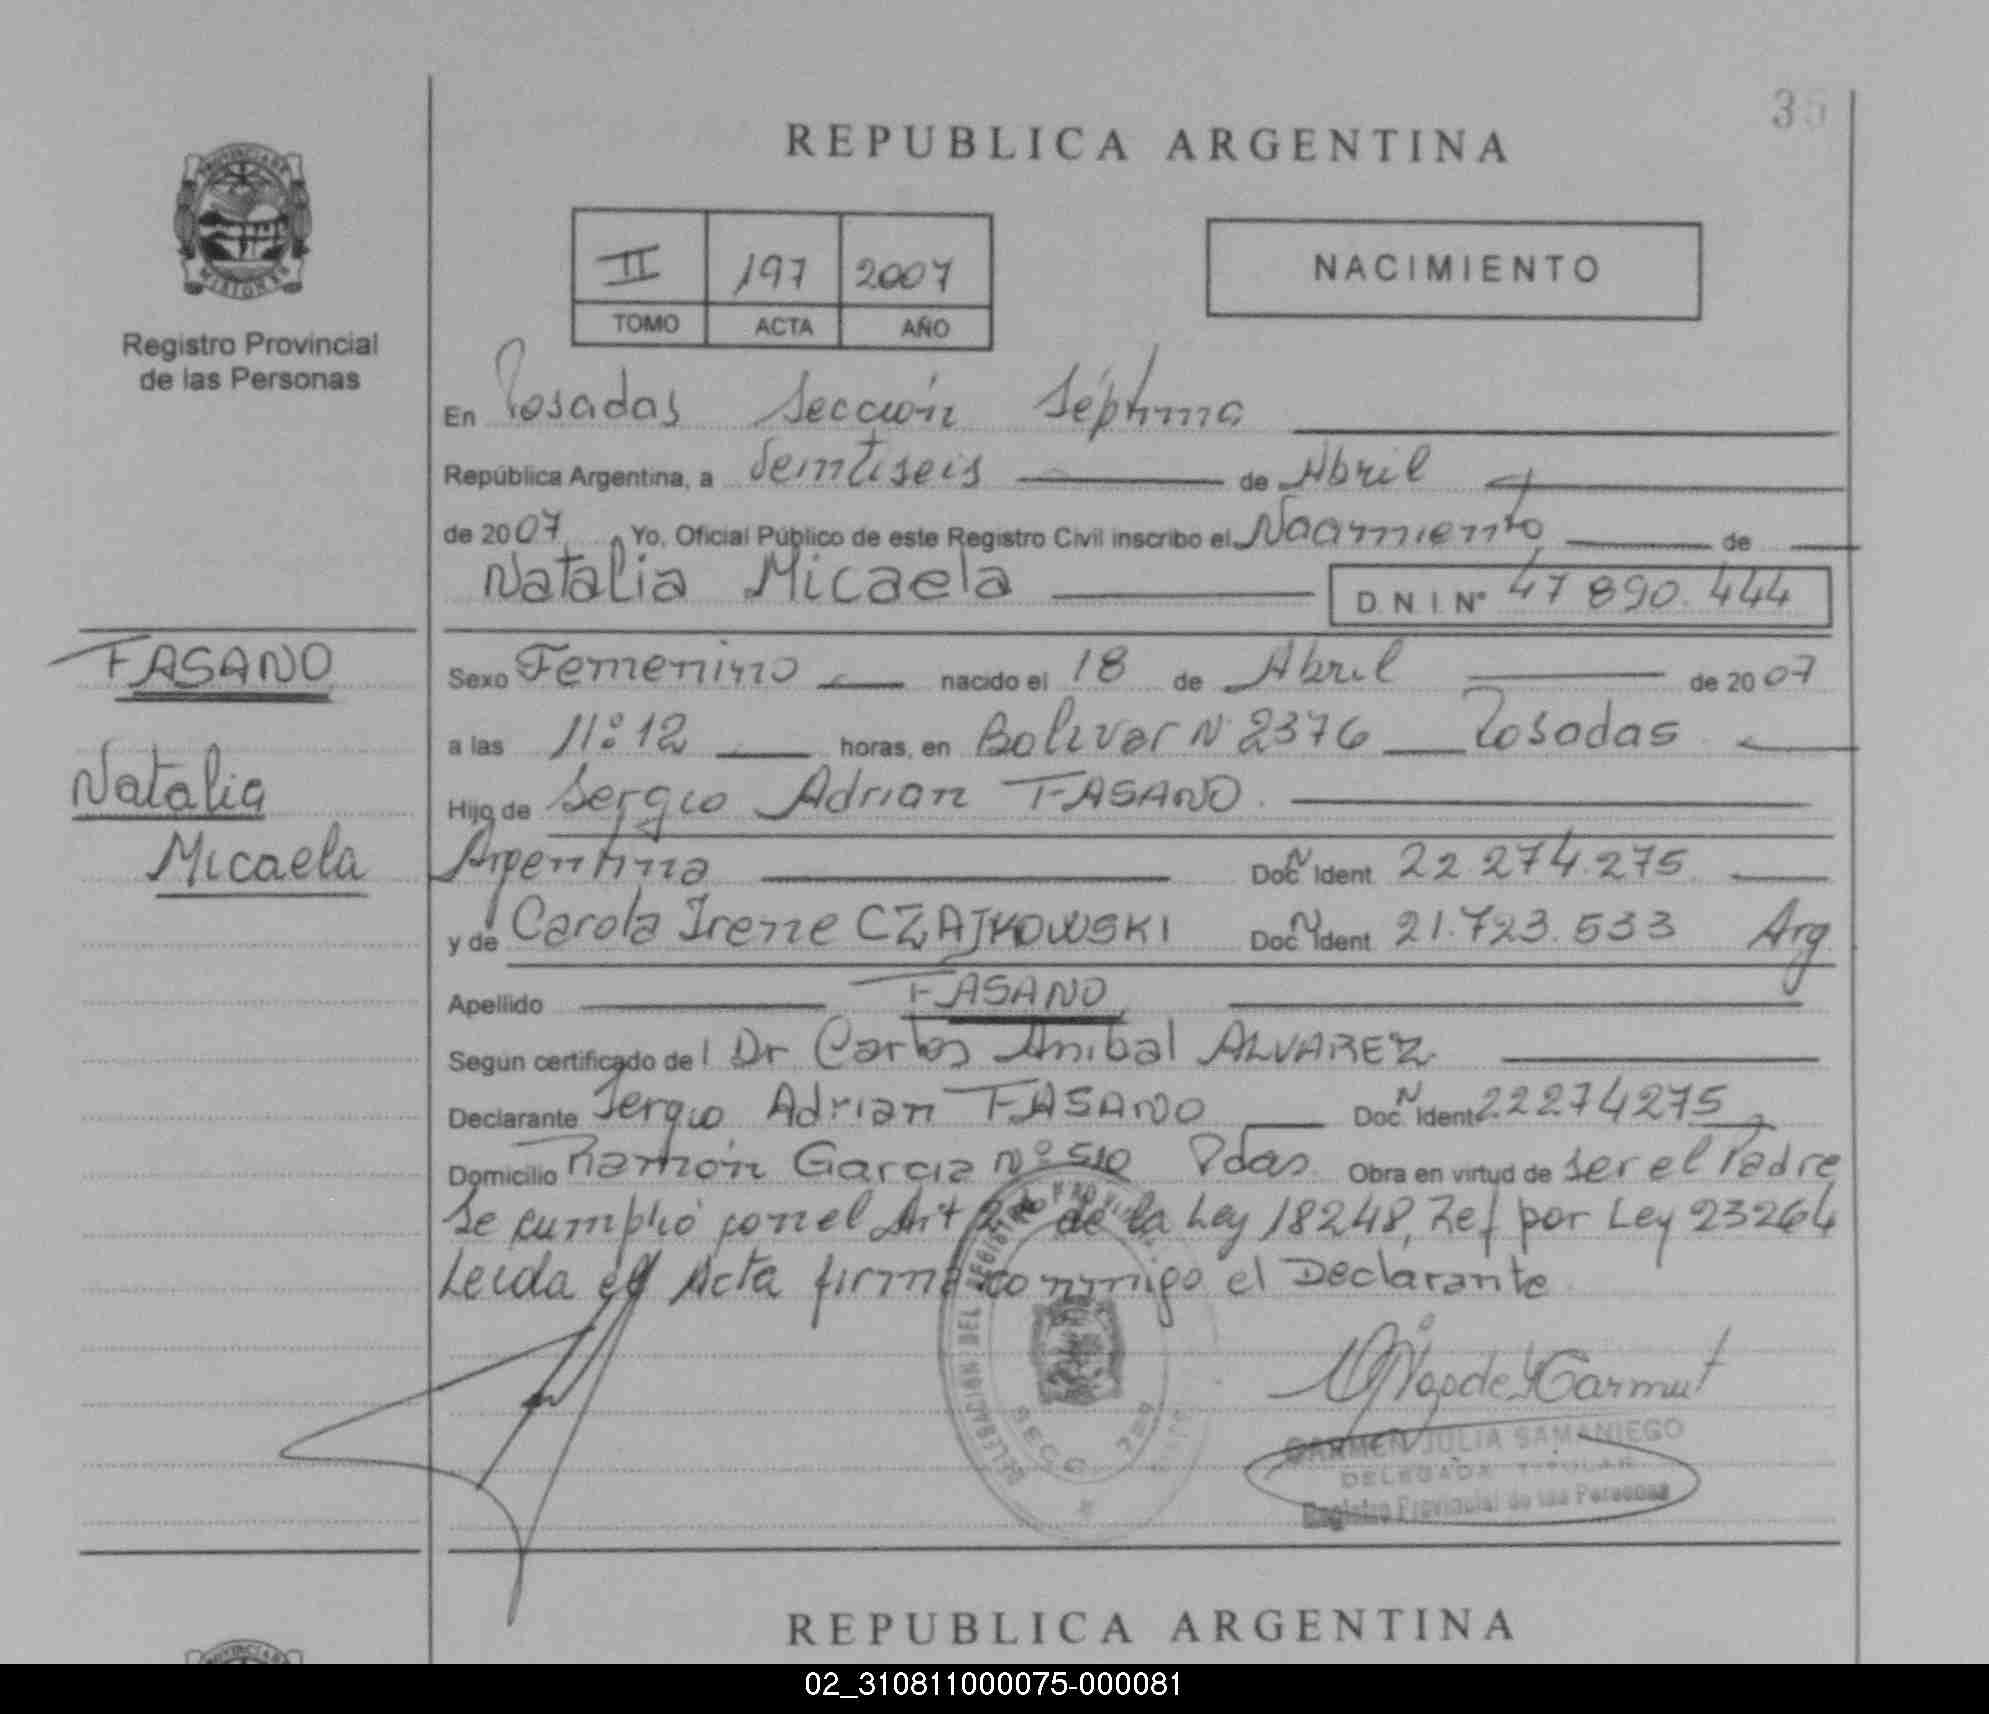 35
REPUBLICA ARGENTINA
PROVINCIA DE
MISIONES
Registro Provincial
de las Personas
II 197 2007
TOMO ACTA AÑO
NACIMIENTO
En Posadas Sección Séptima
República Argentina, a Veintiseis de Abril
de 2007 Yo, Oficial Público de este Registro Civil inscribo el Nacimiento de
Natalia Micaela D N I Nº 47 890.444
FASANO
Natalia
Micaela
Sexo Femenino nacido el 18 de Abril de 2007
a las 11:12 horas, en Bolivar Nº 2376 Posadas
Hijo de Sergio Adrian FASANO.
Argentina Doc N Ident 22.274.275
y de Carola Irene CZAJKOWSKI Doc N Ident 21.723.533 Arg
Apellido FASANO
Según certificado del Dr Carlos Anibal ALVAREZ
Declarante Sergio Adrian FASANO Doc N Ident 22274275
Domicilio Ramón Garcia Nº 510 Pdas. Obra en virtud de ser el Padre
Se cumplió con el Art 2 de la Ley 18248, Ref por Ley 23264
Leida el Acta firma conmigo el Declarante
DELEGACION DEL REGISTRO PROVINCIAL
SECC 7ma
CARMEN JULIA SAMANIEGO
DELEGADA TITULAR
Registro Provincial de las Personas
REPUBLICA ARGENTINA
02_310811000075-000081